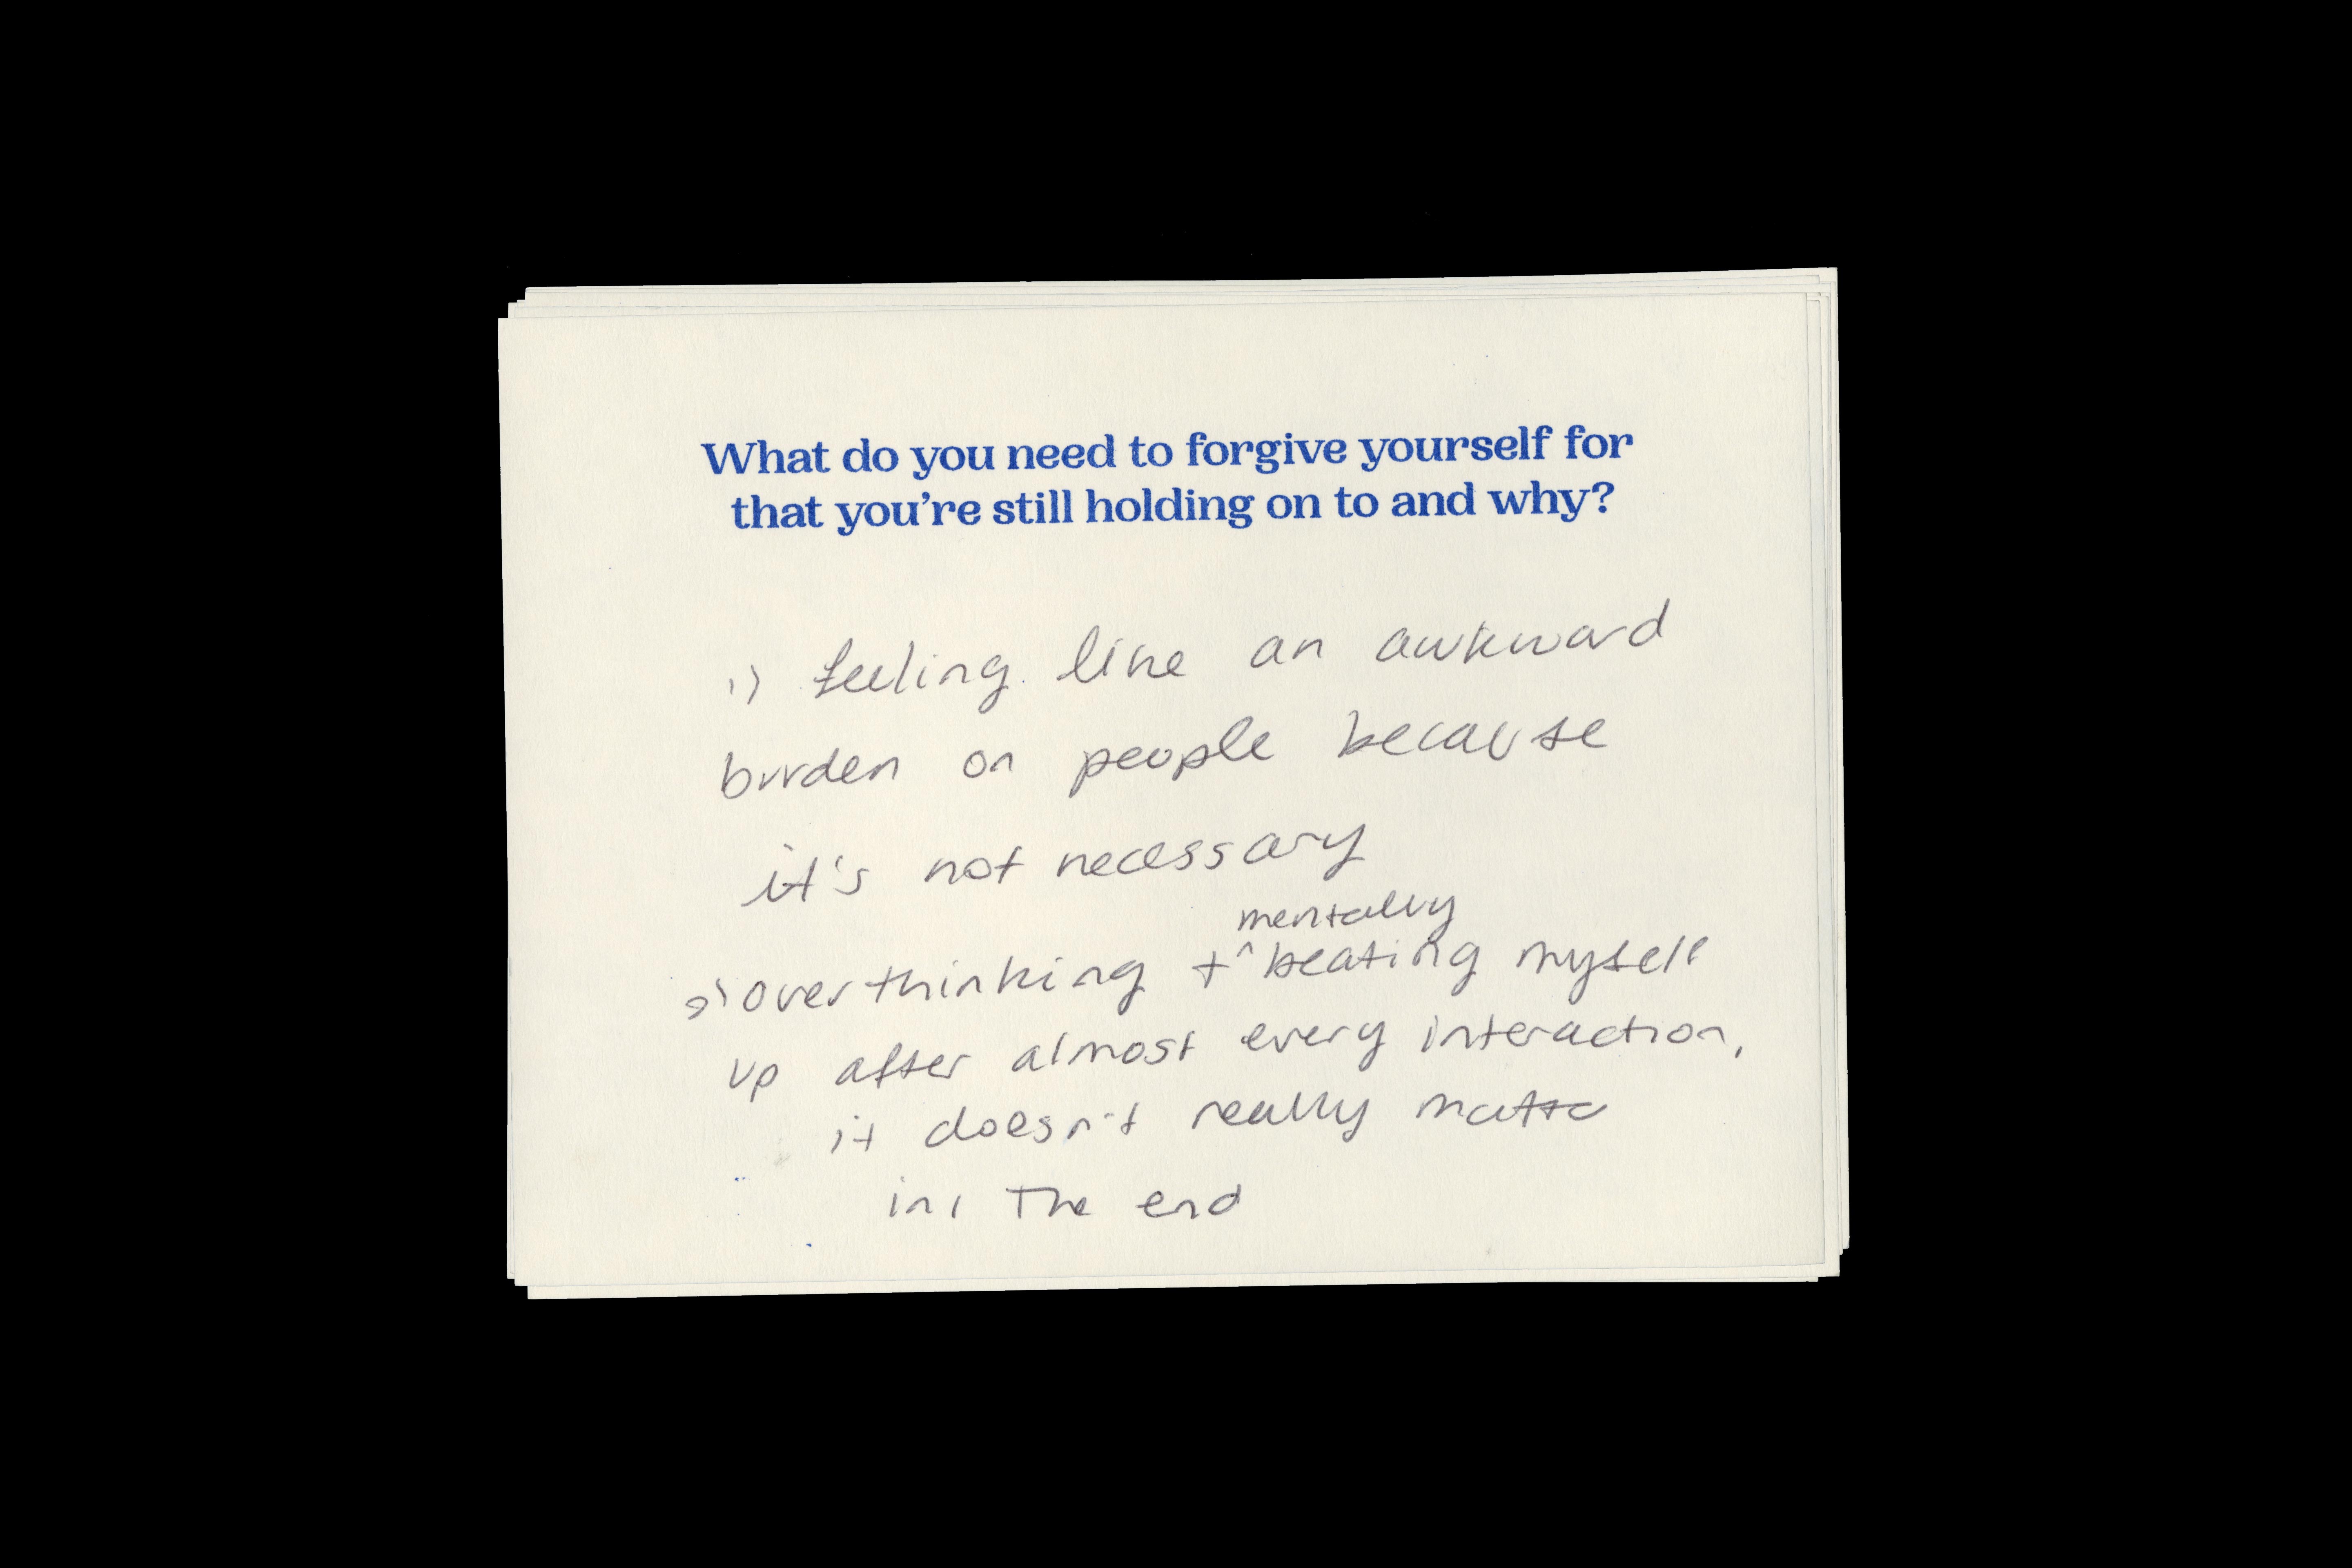 What do you need to forgive yourself for
that you're still holding on to and why?
1) feeling like an awkward
burden on people because
it's not necessary
mentally
2) overthinking + ^ beating myself
up after almost every interaction,
it doesn't really matter
in the end